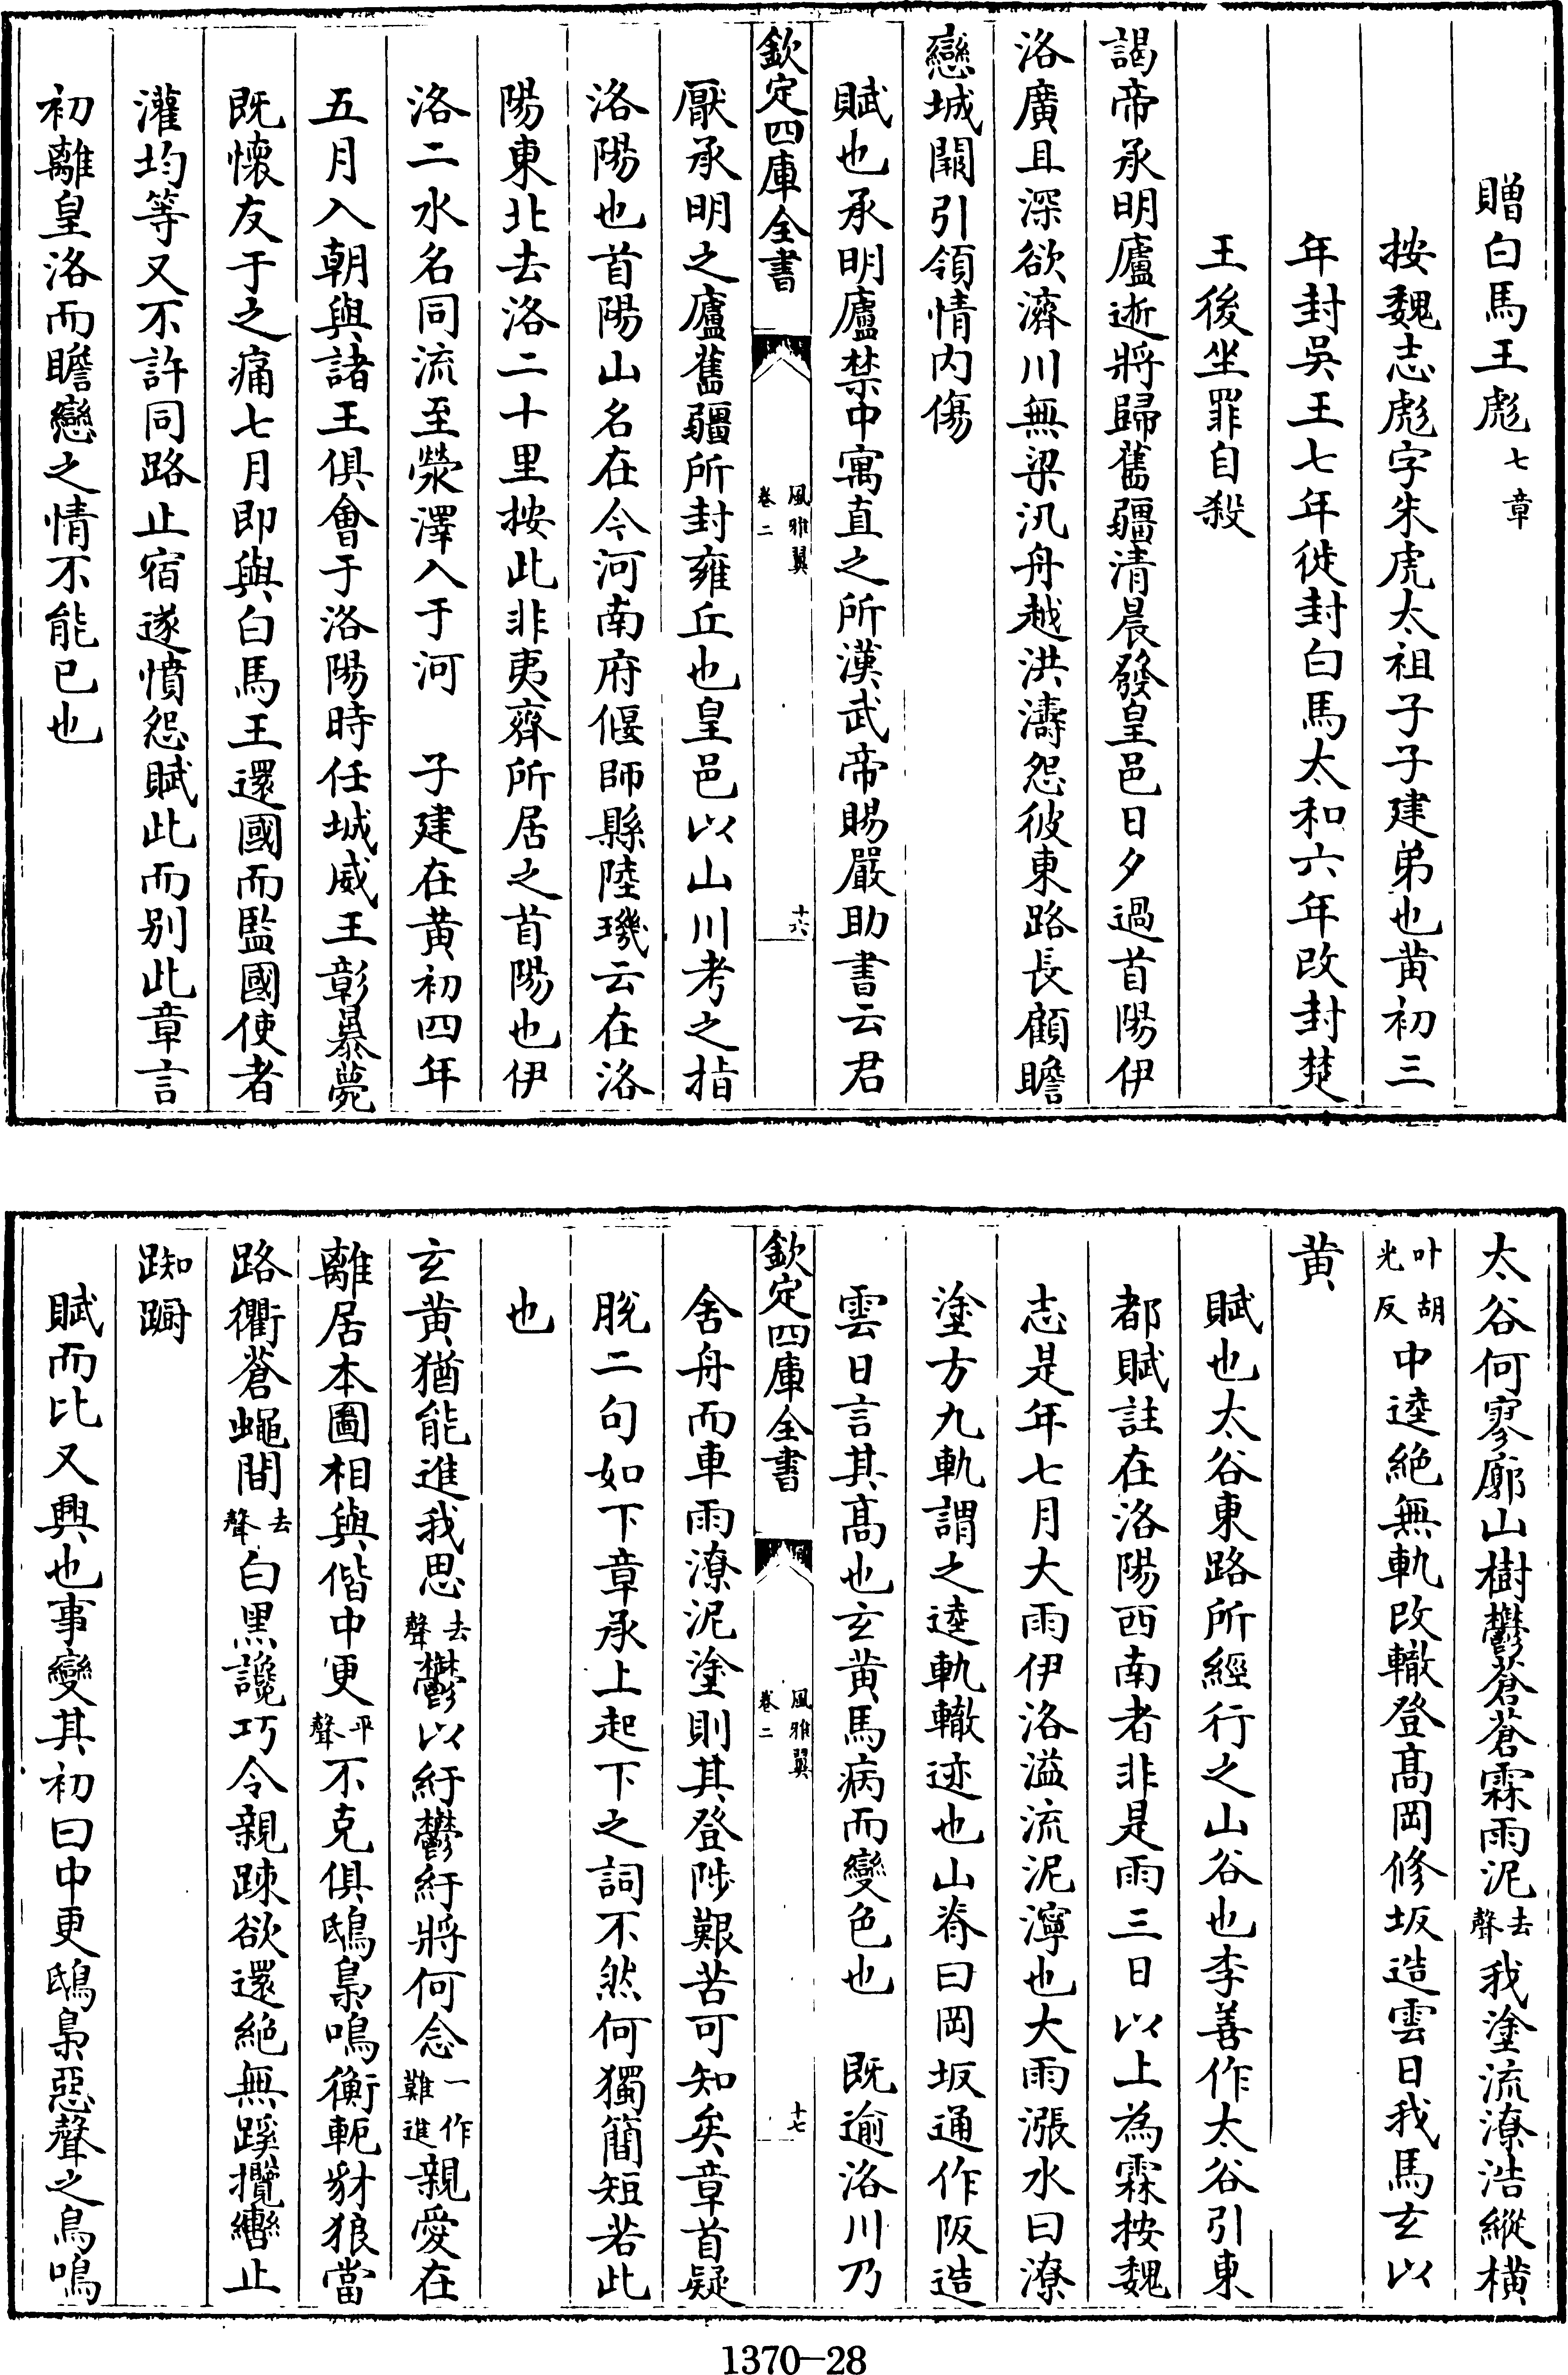 贈白馬王彪七章
按魏志彪字朱虎太祖子子建弟也黄初三
年封吳王七年徙封白馬太和六年改封楚
王後坐罪自殺
謁帝承明廬逝將歸舊疆清晨發皇邑日夕過首陽伊
洛廣且深欲濟川無梁汎舟越洪濤怨彼東路長顧瞻
戀城闕引領情内傷
賦也承明廬禁中寓直之所漢武帝賜嚴助書云君
欽定四庫全書
風雅翼
卷二
十六
厭承明之廬舊疆所封雍丘也皇邑以山川考之指
洛陽也首陽山名在今河南府偃師縣陸璣云在洛
陽東北去洛二十里按此非夷齊所居之首陽也伊
洛二水名同流至滎澤入于河　子建在黄初四年
五月入朝與諸王俱會于洛陽時任城威王彰暴薨
既懷友于之痛七月即與白馬王還國而監國使者
灌均等又不許同路止宿遂憤怨賦此而别此章言
初離皇洛而瞻戀之情不能已也
太谷何寥廓山樹鬱蒼蒼霖雨泥去聲我塗流潦浩縱橫
叶胡光反中逵絶無軌改轍登髙岡修坂造雲日我馬玄以
黄
賦也太谷東路所經行之山谷也李善作太谷引東
都賦註在洛陽西南者非是雨三日以上為霖按魏
志是年七月大雨伊洛溢流泥濘也大雨漲水曰潦
塗方九軌謂之逵軌轍迹也山脊曰岡坂通作阪造
雲日言其髙也玄黄馬病而變色也　既逾洛川乃
欽定四庫全書
風雅翼
卷二
十七
舍舟而車雨潦泥塗則其登陟艱苦可知矣章首疑
脱二句如下章承上起下之詞不然何獨簡短若此
也
玄黄猶能進我思去聲鬱以紆鬱紆將何念一作難進親愛在
離居本圖相與偕中更平聲不克俱鴟梟鳴衡軛豺狼當
路衢蒼蠅間去聲白黑讒巧令親踈欲還絶無蹊攬轡止
踟躕
賦而比又興也事變其初曰中更鴟梟惡聲之鳥鳴
1370—28